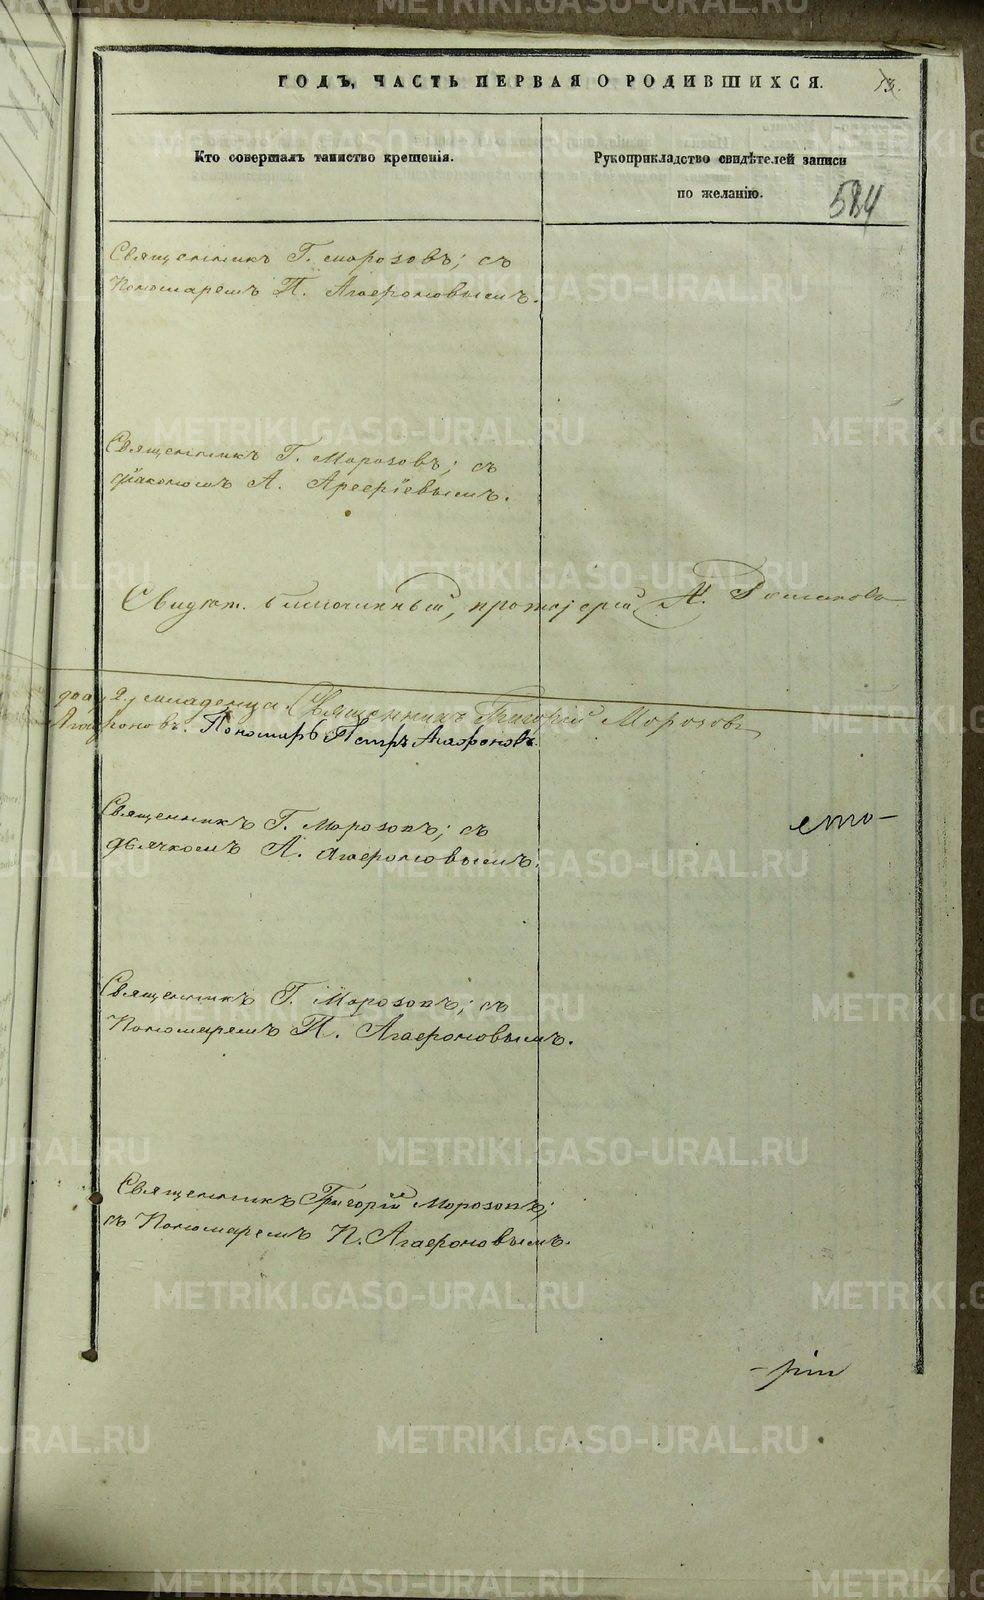 ГОДЪ, ЧАСТЬ ПЕРВАЯ О РОДИВШИХСЯ.
13.
Кто совершалъ таинство крещенія.
Рукоприкладство свидѣтелей записи
по желанію.
584
Священникъ Г. Морозовъ; съ
Пономаремъ П. Агафоновымъ.
Священникъ Г. Морозовъ; съ
діакономъ А. Арефіевымъ.
Свидѣт. благочинный, протоіерей
два /2/ младенца. Священникъ Григорій Морозовъ
Агафоновъ. Пономарь Петръ Агафоновъ.
Священникъ Г. Морозовъ; съ
дьячкомъ А. Агафоновымъ.
сто-
Священникъ Г. Морозовъ; съ
Пономаремъ П. Агафоновымъ.
Священникъ Григорій Морозовъ;
съ Пономаремъ П. Агафоновымъ.
METRIKI.GASO-URAL.RU